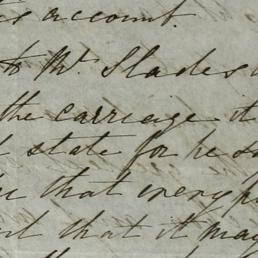 account.
to Mr. Slades
the carriage it
state for he so
that every
that it may